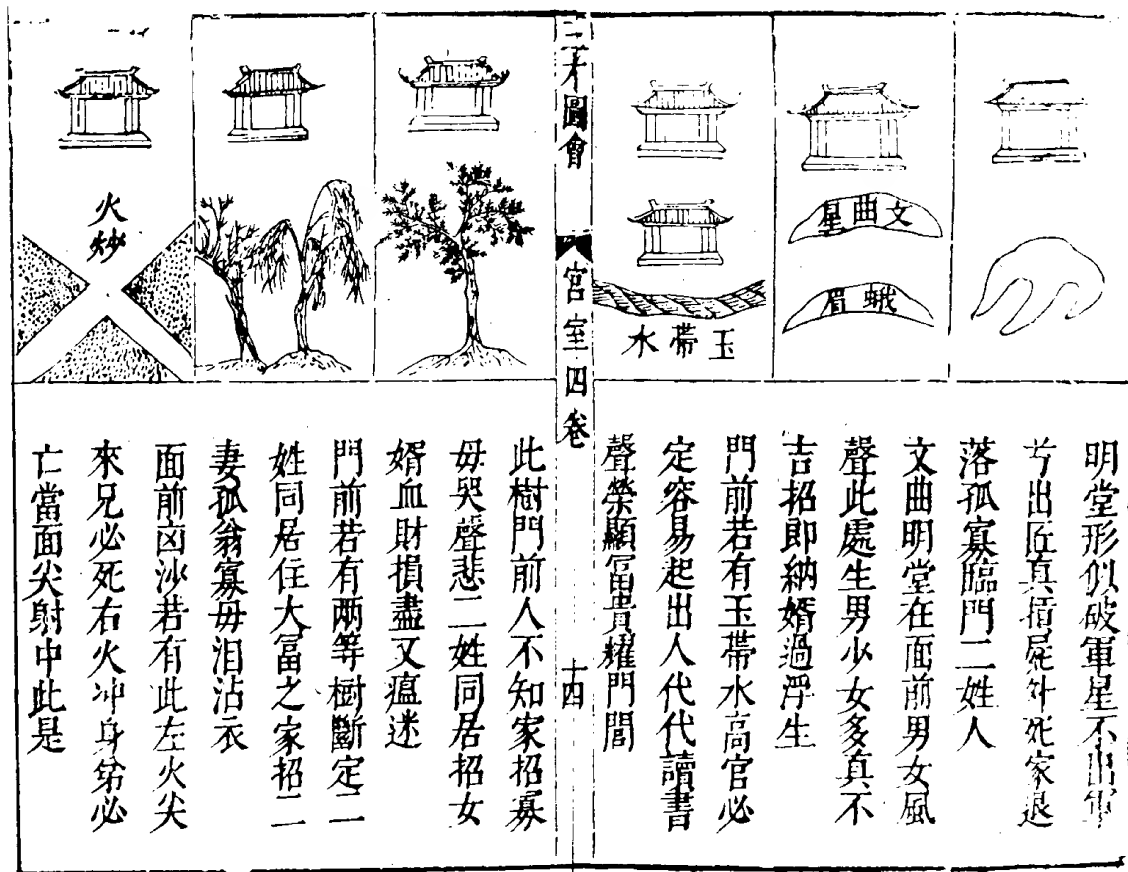 文曲星
蛾眉
玉帶水
明堂形似破軍星不出軍
兮出匠真屍外死家退
落孤寡臨門二姓人
文曲明堂在面前男女風
聲此處生男少女多真不
吉招即納婿過浮生
門前若有玉帶水高官必
定容易起出人代代讀書
聲榮顯富貴耀門閭
三才圖會
宮室四卷
十四
火炒
此樹門前人不知家招寡
毋哭聲悲二姓同居招女
婿血財損盡又瘟迷
門前若有两等樹斷定二
姓同居住大富之家招二
妻孤翁寡毋泪沾衣
面前凶沙若有此左火尖
來兄必死右火冲身弟必
亡當面尖射中此是